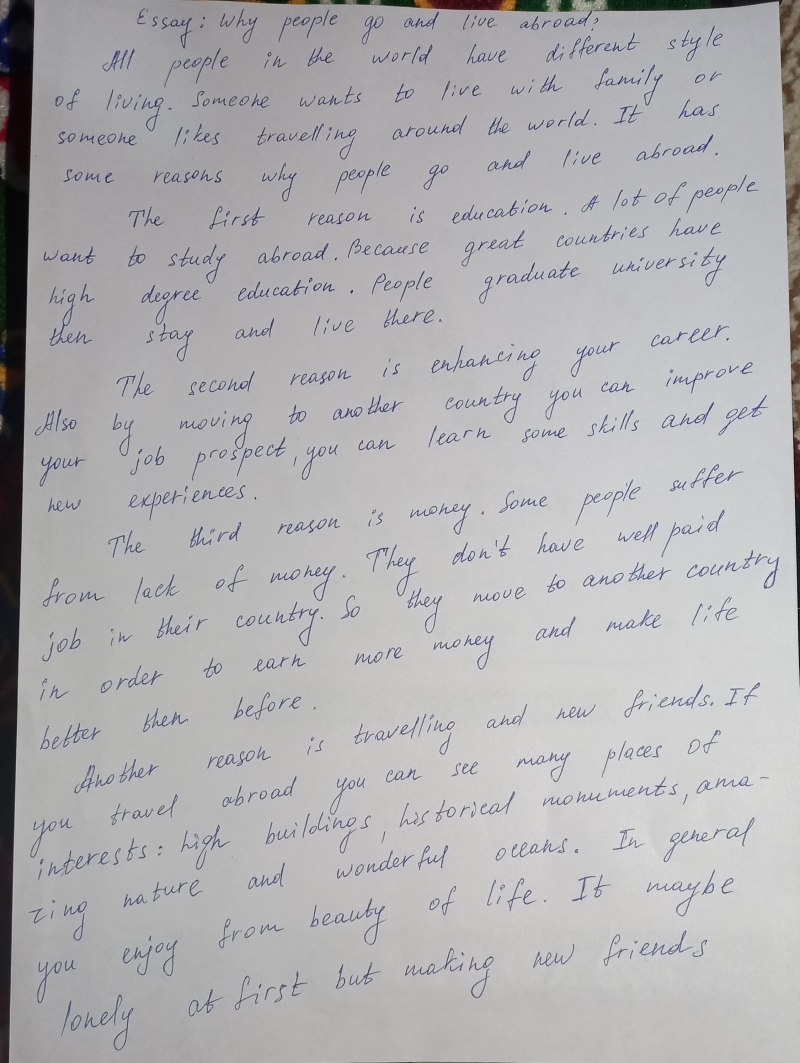 Essay: Why people go and live abroad?
All people in the world have different style
of living. Someone wants to live with family or
someone likes travelling around the world. It has
some reasons why people go and live abroad.
The first reason is education. A lot of people
want to study abroad. Because great countries have
high degree education. People graduate university
then stay and live there.
The second reason is enhancing your career.
Also by moving to another country you can improve
your job prospect, you can learn some skills and get
new experiences.
The third reason is money. Some people suffer
from lack of money. They don't have well paid
job in their country. So they move to another country
in order to earn more money and make life
better then before.
Another reason is travelling and new friends. If
you travel abroad you can see many places of
interests: high buildings, historical monuments, ama-
zing nature and wonderful oceans. In general
you enjoy from beauty of life. It maybe
lonely at first but making new friends